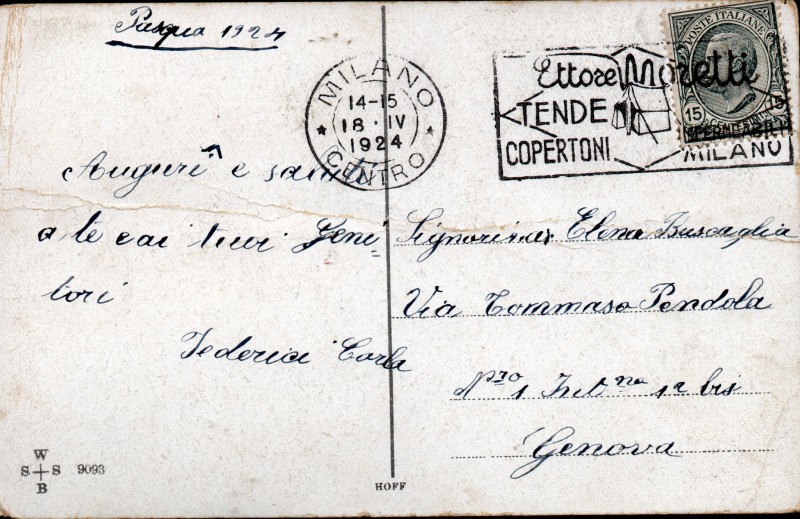 Pasqua 1924
MILANO
14-15
18·IV
1924
CENTRO
Ettore Moretti
TENDE
COPERTONI
MILANO
POSTE ITALIANE
15 15
Auguri e
a te e ai tuoi geni
tori
Federici Carla
Signorina Elena Buscaglia
Via Tommaso Pendola
Nro 1 Intna 12 bis
Genova
W
S S 9093
B
HOFF